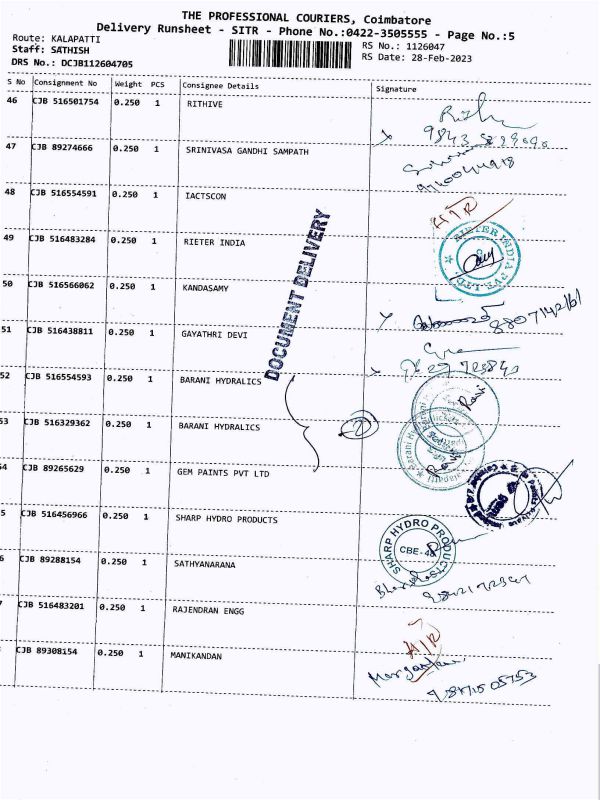 THE PROFESSIONAL COURIERS, Coimbatore
Delivery Runsheet - SITR - Phone No.:0422-3505555 - Page No.:5
Route: KALAPATTI
Staff: SATHISH
DRS No.: DCJB112604705
RS No.: 1126047
RS Date: 28-Feb-2023
S No Consignment No Weight PCS Consignee Details Signature
46 CJB 516501754 0.250 1 RITHIVE
47 CJB 89274666 0.250 1 SRINIVASA GANDHI SAMPATH
48 CJB 516554591 0.250 1 IACTSCON
H/R
49 CJB 516483284 0.250 1 RIETER INDIA
RIETER INDIA PVT. LTD.
50 CJB 516566062 0.250 1 KANDASAMY
DOCUMENT DELIVERY
51 CJB 516438811 0.250 1 GAYATHRI DEVI
52 CJB 516554593 0.250 1 BARANI HYDRALICS
53 CJB 516329362 0.250 1 BARANI HYDRALICS
2
54 CJB 89265629 0.250 1 GEM PAINTS PVT LTD
5 CJB 516456966 0.250 1 SHARP HYDRO PRODUCTS
SHARP HYDRO PRODUCTS
CBE-48
6 CJB 89288154 0.250 1 SATHYANARANA
7 CJB 516483201 0.250 1 RAJENDRAN ENGG
H/R
CJB 89308154 0.250 1 MANIKANDAN